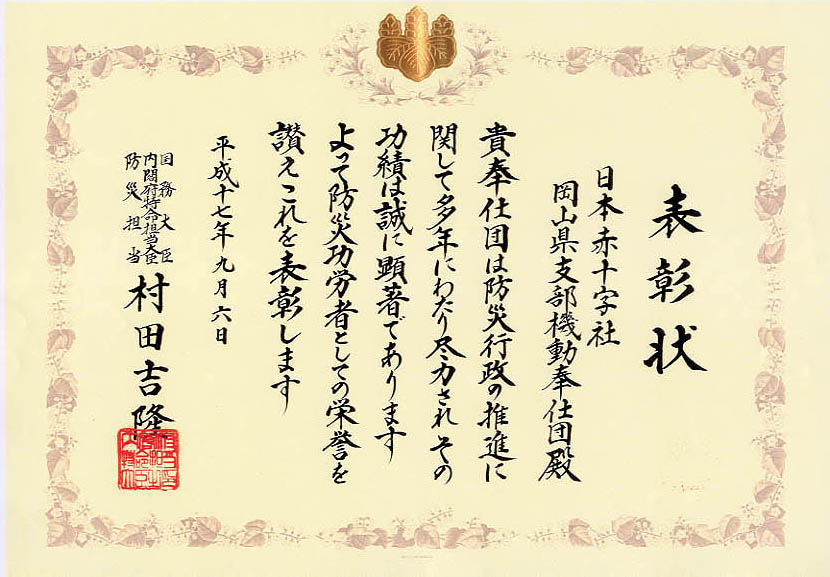 表彰状
日本赤十字社
岡山県支部機動奉仕団殿
貴奉仕団は防災行政の推進に
関して多年にわたり尽力されその
功績は誠に顕著であります
よって防災功労者としての栄誉を
讃えこれを表彰します
平成十七年九月六日
国務大臣
内閣府特命担当大臣
防災担当
村田吉隆